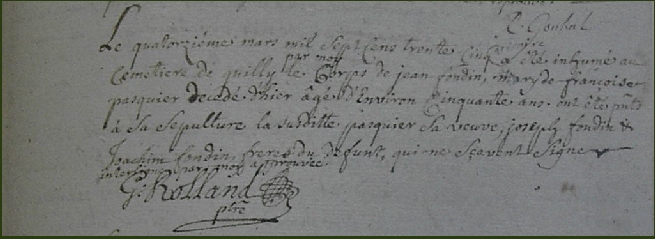 R. Goubal
Le quatorziéme mars mil sept cens trente cinq a été inhumé au
cemetiere de quilly par nous le Corps de jean fondin, mary de françoise
pasquier decede d'hier âgé d'Environ Cinquante ans. ont été pnts
à sa sepulture la susditte pasquier sa veuve, joseph fondin &
Joachim fondin, freres du defunt, qui ne sçavent signer
interligne par nous approuvée
Rolland
ptre